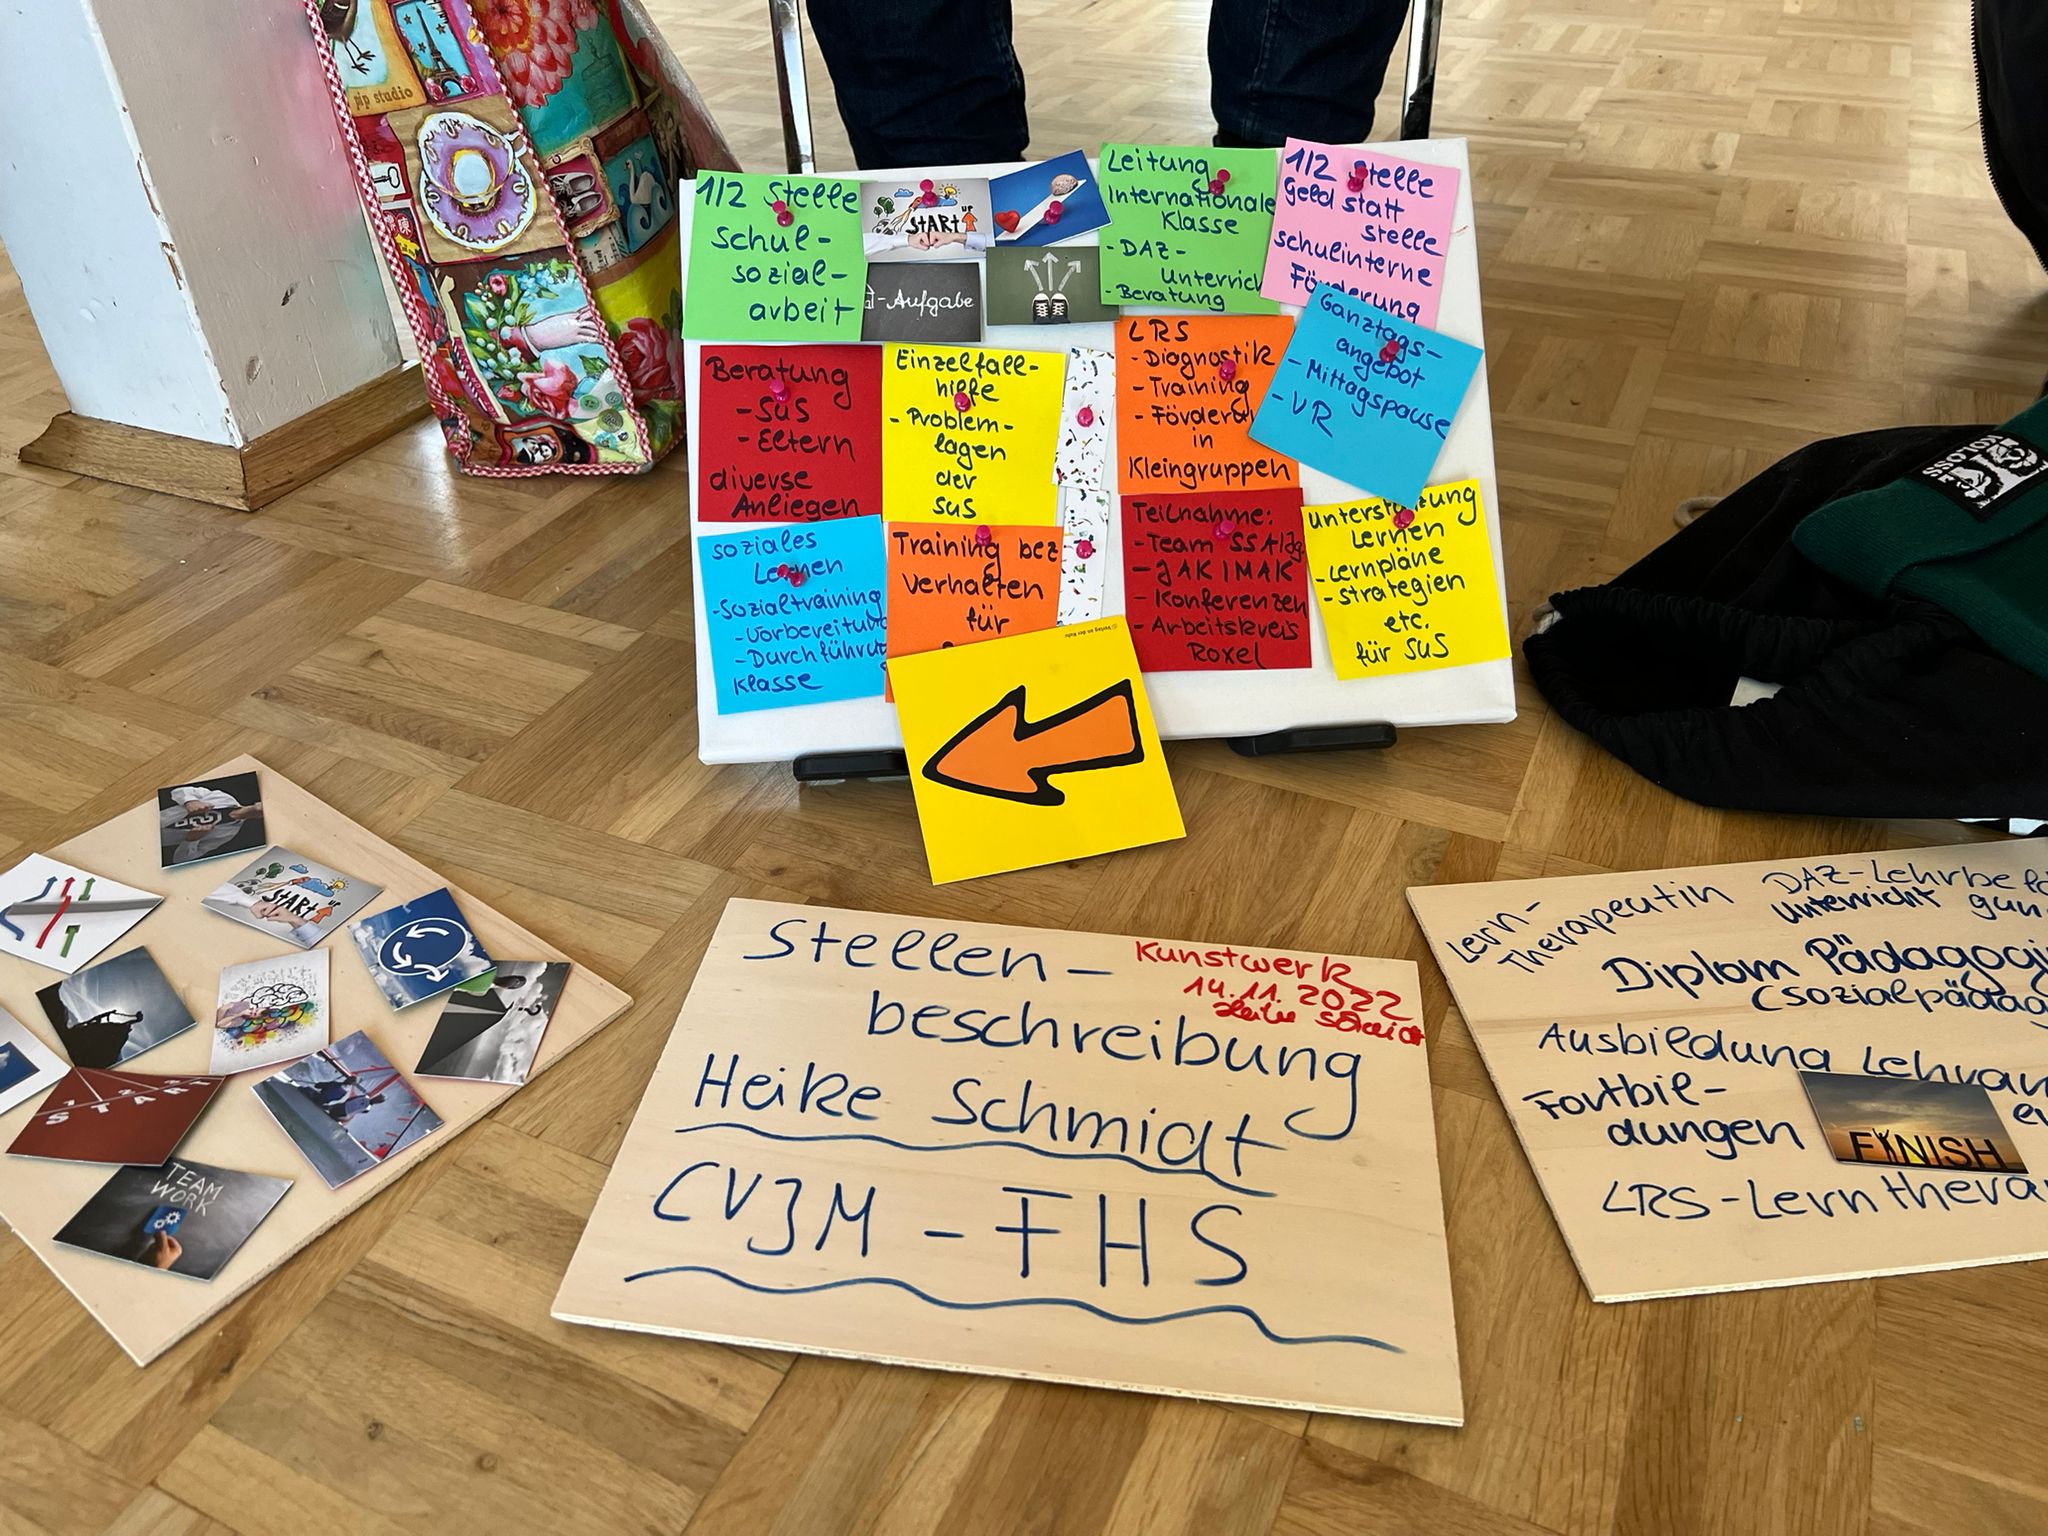 pip studio
1/2 Stelle
Schul-
sozial-
arbeit
START
UP
-Aufgabe
Leitung
Internationale
Klasse
- DAZ-
Unterrich
- Beratung
1/2 Stelle
Geld statt
Stelle
schulinterne
Förderung
Beratung
- SuS
- Eltern
diverse
Anliegen
Einzelfall-
hilfe
- Problem-
lagen
der
SuS
LRS
- Diagnostik
- Training
- Förderu
in
Kleingruppen
Ganztags-
angebot
- Mittagspause
- VR
soziales
Lernen
- Sozialtraining
- Vorbereitun
- Durchführu
Klasse
Training bez
Verhalten
für
Teilnahme:
- Team
- JAK | MAK
- Konferenzen
- Arbeitskreis
Roxel
Unterstützung
Lernen
- Lernpläne
- Strategien
etc.
für SuS
© Verlag an der Ruhr
START
UP
START
TEAM
WORK
Stellen-
beschreibung
Heike Schmidt
CVJM - FHS
Kunstwerk
14.11.2022
Heike Schmidt
Lern-
Therapeutin
DAZ-Lehrbe
Unterricht
Diplom Pädagogi
(Sozialpädag
Ausbildung Lehram
Fortbil-
dungen
FINISH
LRS-Lernthera